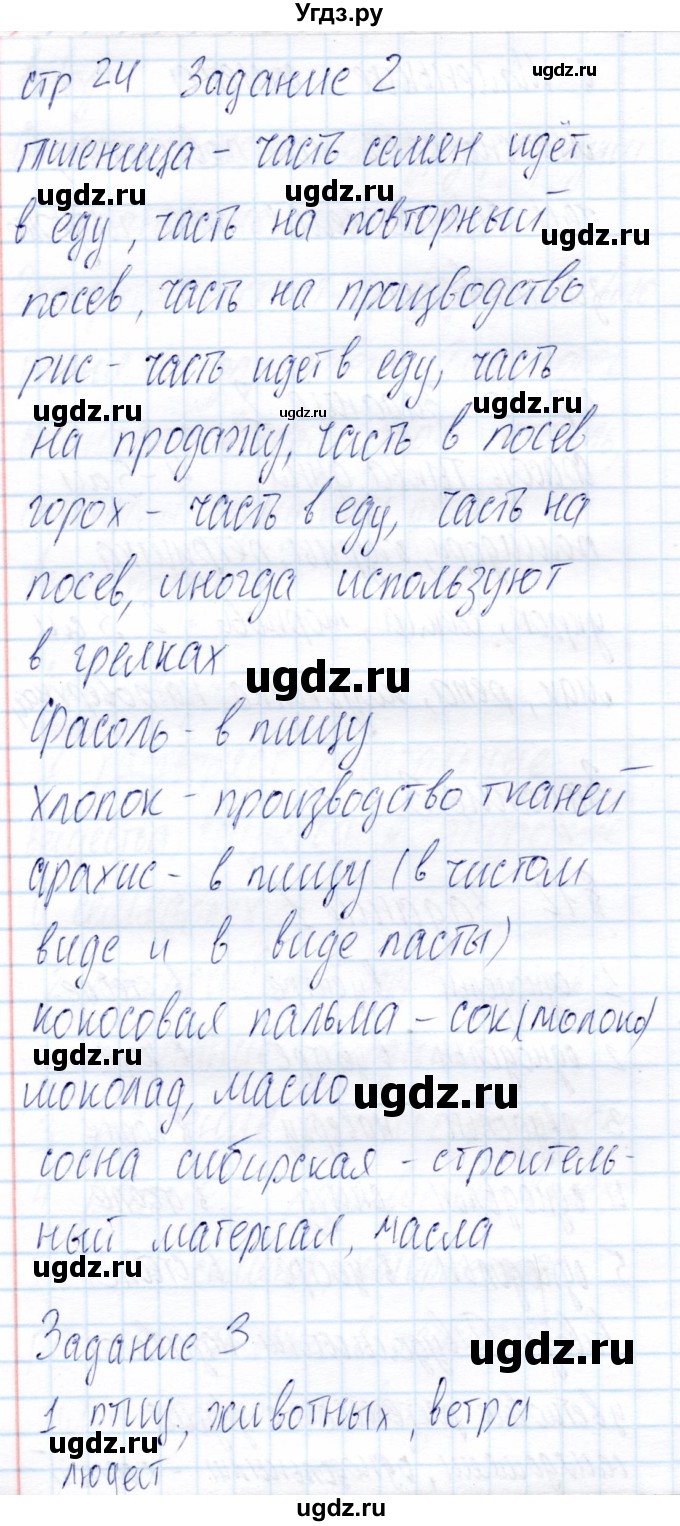 Угдз.ру
стр 24 Задание 2
ugdz.ru
пшеница - часть семян идёт
ugdz.ru ugdz.ru
в еду, часть на повторный
ugdz.ru
посев, часть на производство
рис - часть идет в еду, часть
ugdz.ru ugdz.ru ugdz.ru
на продажу, часть в посев
горох - часть в еду, часть на
посев, иногда используют
в грелках
ugdz.ru
Фасоль - в пищу
хлопок - производство тканей
арахис - в пищу (в чистом
виде и в виде пасты)
кокосовая пальма - сок (молоко)
ugdz.ru
шоколад, масло
ugdz.ru
сосна сибирская - строитель-
ный материал, масла
ugdz.ru
Задание 3
ugdz.ru
1 птиц, животных, ветра
ugdz.ru
людей
ugdz.ru